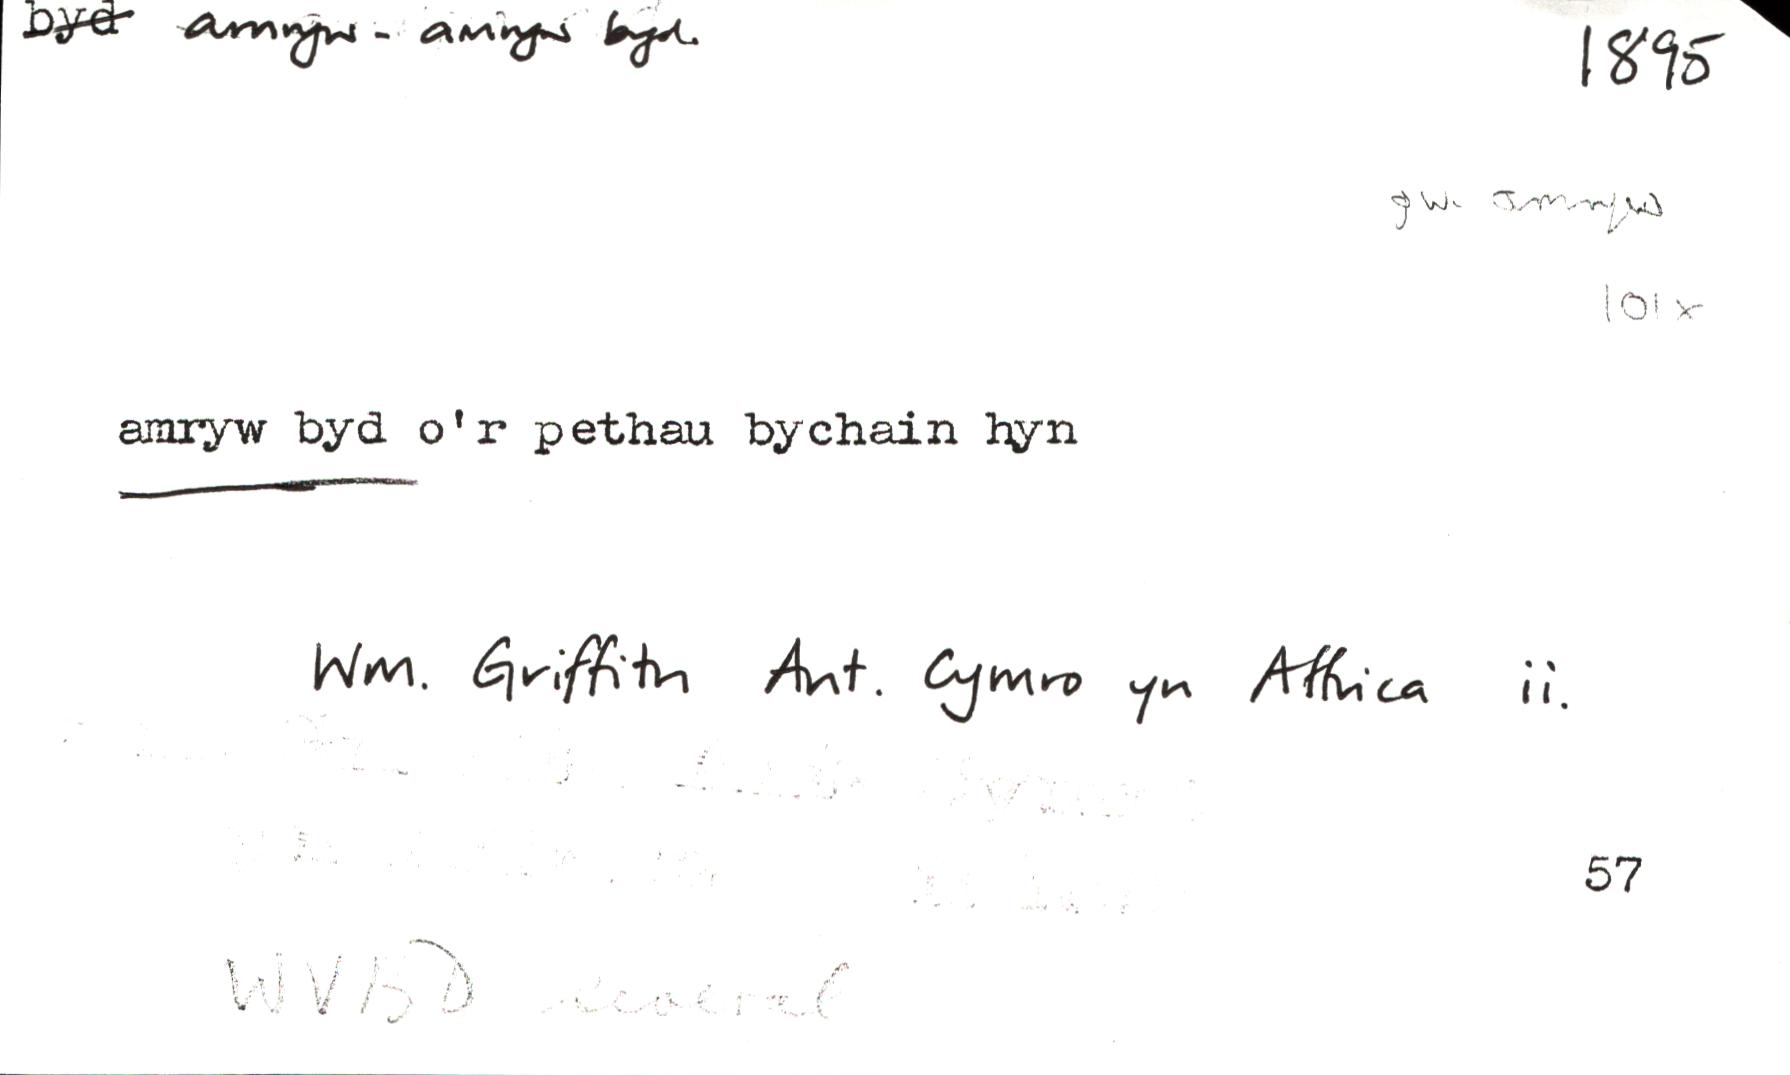 byd amryw - amryw byd.
1895
gw. amryw
101x
amryw byd o'r pethau bychain hyn
Wm. Griffith Ant. Cymro yn Affrica ii.
57
WVBD several